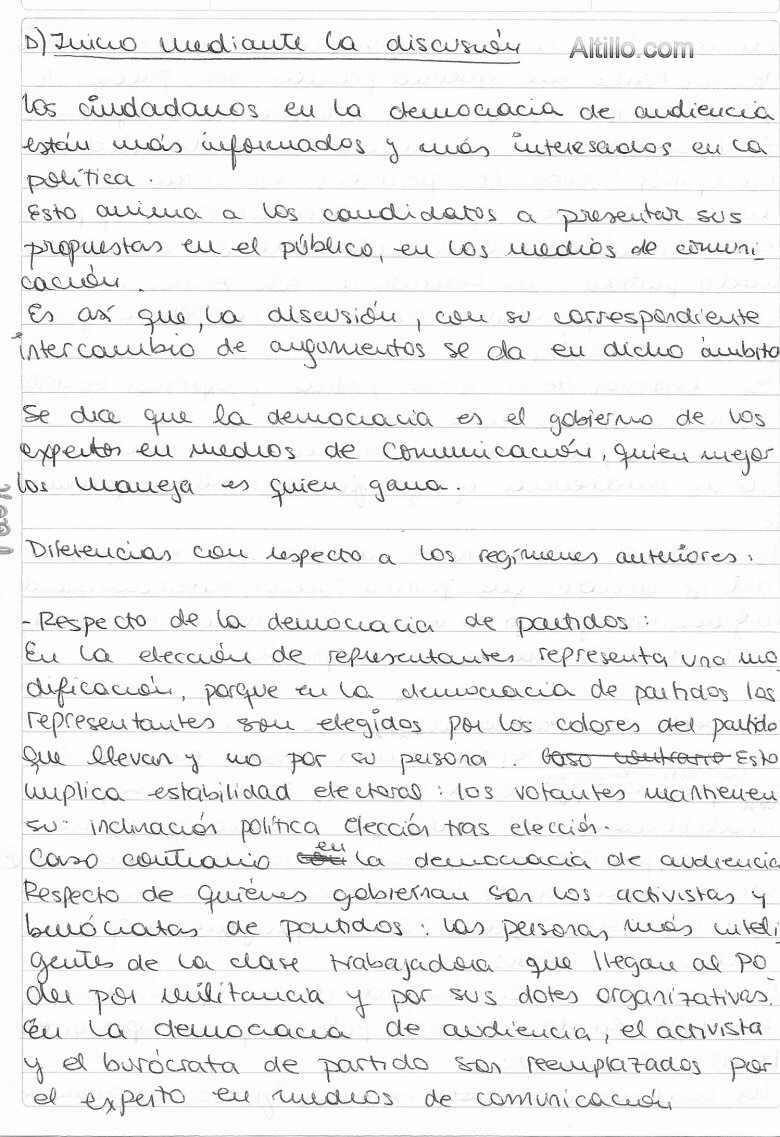 D) Juicio mediante la discusión
Altillo.com
Los ciudadanos en la democracia de audiencia
están más informados y más interesados en la
política.
Esto anima a los candidatos a presentar sus
propuestas en el público, en los medios de comuni-
cación.
Es así que, la discusión, con su correspondiente
intercambio de argumentos se da en dicho ámbito
Se dice que la democracia es el gobierno de los
expertos en medios de comunicación, quien mejor
los maneja es quien gana.
Diferencias con respecto a los regímenes anteriores:
- Respecto de la democracia de partidos:
En la elección de representantes representa una mo
dificación, porque en la democracia de partidos los
representantes son elegidos por los colores del partido
que llevan y no por su persona. Caso contrario Esto
implica estabilidad electoral: los votantes mantienen
su inclinación política elección tras elección.
Caso contrario en la democracia de audiencia
Respecto de quiénes gobiernan son los activistas y
burócratas de partidos: las personas más inteli
gentes de la clase trabajadora que llegan al po-
der por militancia y por sus dotes organizativas.
En la democracia de audiencia, el activista
y el burócrata de partido son reemplazados por
el experto en medios de comunicación